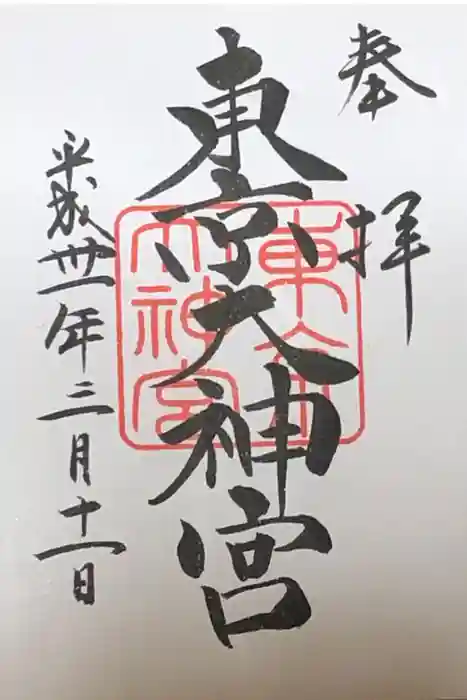 奉拝
東京大神宮
東京
大神宮
平成卅一年三月十一日